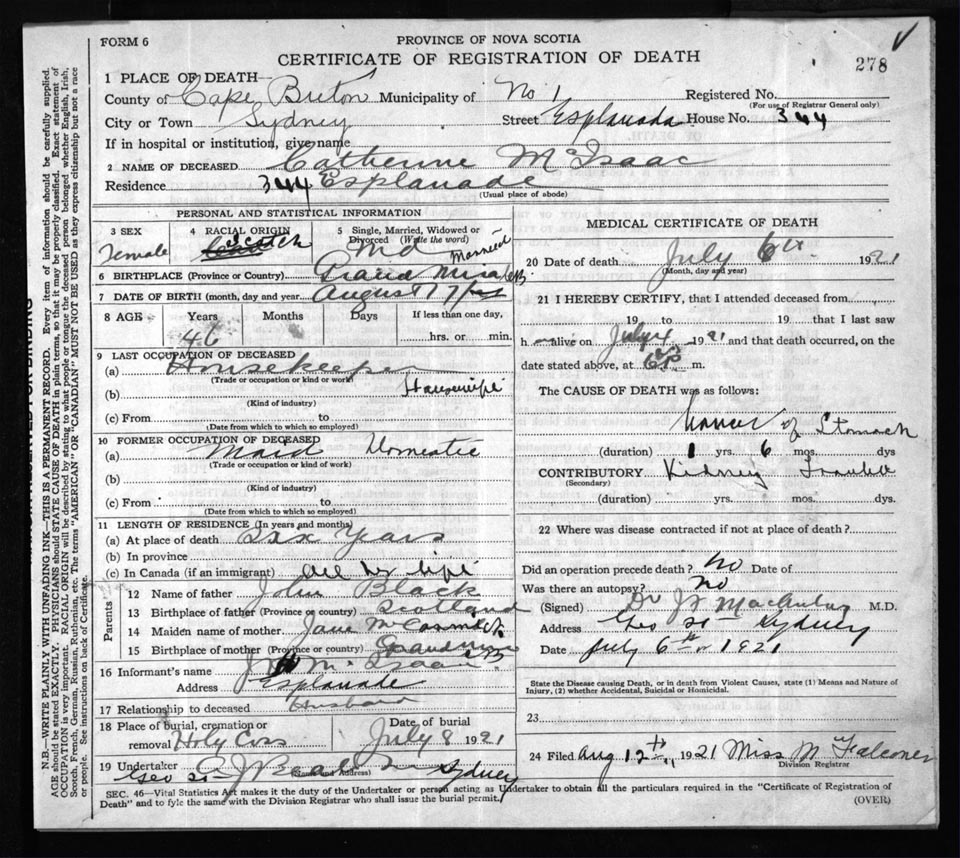 FORM 6
PROVINCE OF NOVA SCOTIA
CERTIFICATE OF REGISTRATION OF DEATH
278
1 PLACE OF DEATH—
County of Cape Breton Municipality of No 1 Registered No.
(For use of Registrar General only)
City or Town Sydney Street Esplanada House No. 344
If in hospital or institution, give name
2 NAME OF DECEASED Catherine McIsaac
Residence 344 Esplanade
(Usual place of abode)
PERSONAL AND STATISTICAL INFORMATION
3 SEX 4 RACIAL ORIGIN 5 Single, Married, Widowed or Divorced (Write the word)
Female Scotch Md Married
6 BIRTHPLACE (Province or Country)
7 DATE OF BIRTH (month, day and year) August 17
8 AGE Years Months Days If less than one day,
46 hrs. or min.
9 LAST OCCUPATION OF DECEASED
(a) Housekeeper
(Trade or occupation or kind or work)
(b) Housewife
(Kind of industry)
(c) From to
(Date from which to which so employed)
10 FORMER OCCUPATION OF DECEASED
(a) Maid Domestic
(Trade or occupation or kind or work)
(b)
(Kind of industry)
(c) From to
(Date from which to which so employed)
11 LENGTH OF RESIDENCE (In years and months)
(a) At place of death Six Years
(b) In province
(c) In Canada (if an immigrant) All her life
Parents
12 Name of father John Black
13 Birthplace of father (Province or country) Scotland
14 Maiden name of mother Jane McCormick
15 Birthplace of mother (Province or country)
16 Informant's name McIsaac
Address Esplanade
17 Relationship to deceased Husband
18 Place of burial, cremation or removal Holy Cross Date of burial July 8 1921
19 Undertaker A J Beaton
(Name and Address)
Geo St Sydney
MEDICAL CERTIFICATE OF DEATH
20 Date of death July 6th 1921
(Month, day and year)
21 I HEREBY CERTIFY, that I attended deceased from
19 to 19 that I last saw
h alive on July 4 1921 and that death occurred, on the
date stated above, at 6 P. m.
The CAUSE OF DEATH was as follows:
Cancer of Stomach
(duration) 1 yrs. 6 mos. dys
CONTRIBUTORY Kidney Trouble
(Secondary)
(duration) yrs. mos. dys.
22 Where was disease contracted if not at place of death?
Did an operation precede death? No Date of
Was there an autopsy? No
(Signed) Dr M.D.
Address Geo St Sydney
Date July 6th 1921
State the Disease causing Death, or in death from Violent Causes, state (1) Means and Nature of Injury, (2) whether Accidental, Suicidal or Homicidal.
23
24 Filed Aug 12th 1921 Miss M Falconer
Division Registrar
SEC. 46—Vital Statistics Act makes it the duty of the Undertaker or person acting as Undertaker to obtain all the particulars required in the "Certificate of Registration of
Death" and to fyle the same with the Division Registrar who shall issue the burial permit.
(OVER)
N.B.—WRITE PLAINLY WITH UNFADING INK.—THIS IS A PERMANENT RECORD. Every item of information should be carefully supplied.
AGE should be stated EXACTLY. PHYSICIANS should STATE CAUSE OF DEATH in plain terms, so that it may be properly classified. Exact statement of
OCCUPATION is very important. RACIAL ORIGIN will be described by stating to what people or tongue the deceased person belonged whether English, Irish,
Scotch, French, German, Russian, Ruthenian, etc. The terms "AMERICAN" OR "CANADIAN" MUST NOT BE USED as they express citizenship but not a race
or people. See instructions on back of Certificate.